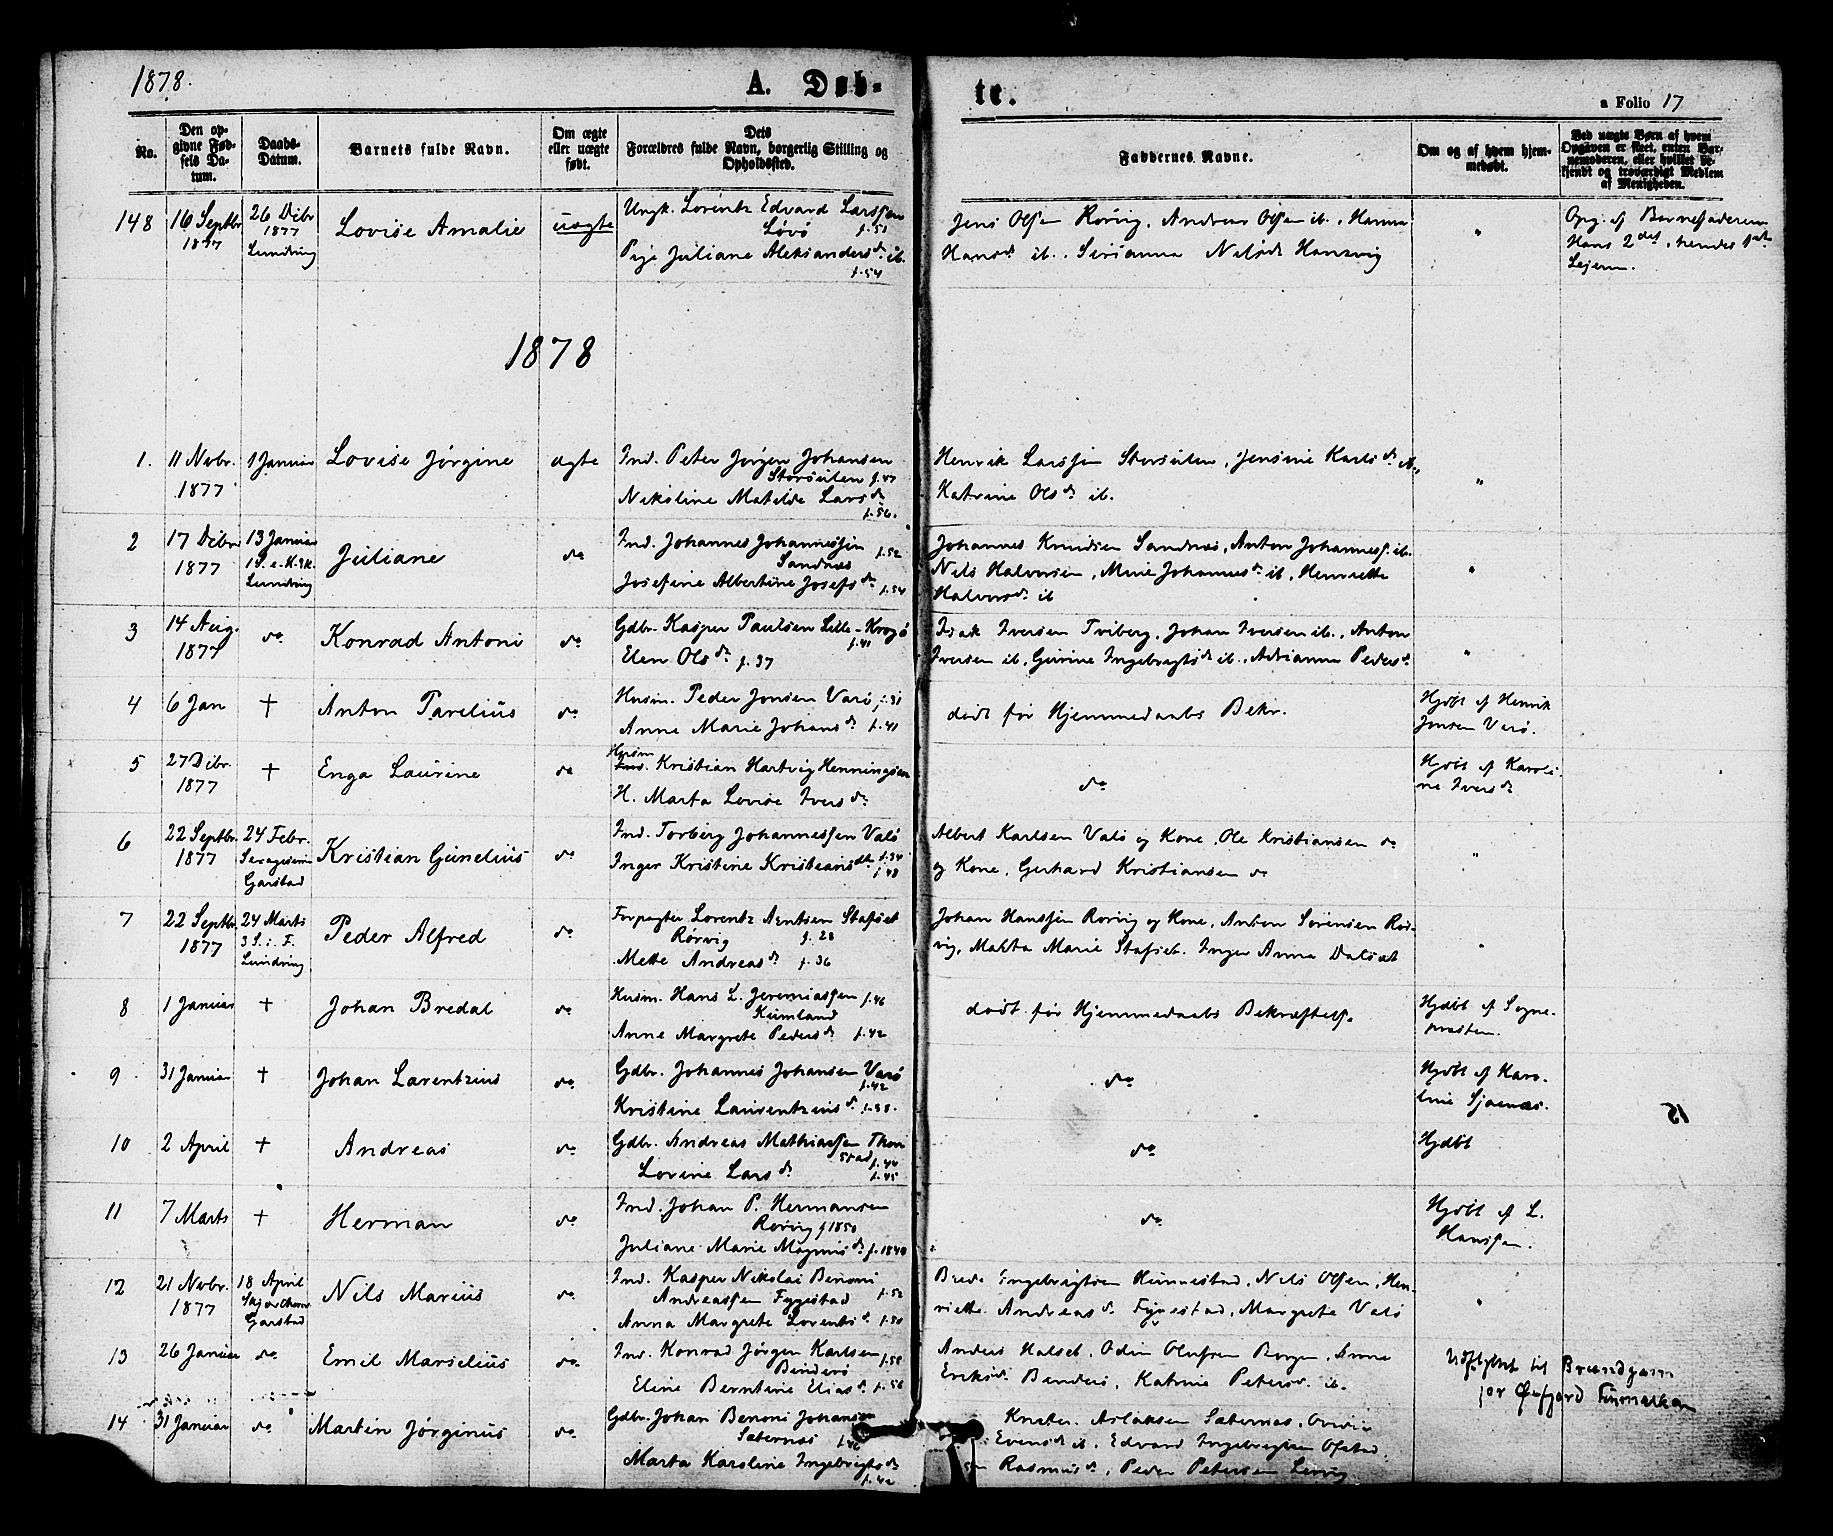 1878.
A. Døb-
te.
a Folio 17
No.
Den op-
givne Fød-
sels Da-
tum.
Daabs-
Datum.
Barnets fulde Navn.
Om ægte
eller uægte
født.
Dets
Forældres fulde Navn, borgerlig Stilling og
Opholdssted.
Faddernes Navne.
Om og af hvem hjem-
medøbt.
Ved uægte Børn af hvem
Opgaven er skeet, enten Bar-
nemoderen, eller hvilket be-
kjendt og troværdigt Medlem
af Menigheden.
148 16 Septbr 1877
26 Dcbr 1877 Lundring
Lovise Amalie
uægte
Ungk. Lorentz Edvard Larssen
Løvø f. 51
Pige Juliane Aleksandersdr ib.
f. 54
Jens Olsen Rørvig, Andreas Olsen ib., Hanna
Hansdr ib., Sirianna Nilsdr Hansvig
"
Opg. af Barnefaderen
Hans 2det, hendes 1ste
Lejerm.
1878
1. 11 Novbr. 1877
1 Januar
Lovise Jørgine
ægte
Ind. Peter Jørgen Johansen
Storsulen f. 47
Nikoline Matilde Larsdr
f. 56.
Henrik Larssen Storsulen, Jensine Karlsdr ib.,
Katrine Olsdr ib.
"
2 17 Dcbr 1877
13 Januar
1 S. e. H. 3 K.
Lundring
Juliane
do
Ind. Johannes Johannessen f. 52
Sandnæs
Josefine Albertine Josefsdr f. 54
Johannes Knudsen Sandnæs, Anton Johanness. ib.
Nils Halvorsen, Mine Johannesdr ib, Henriette
Halvorsdr ib
"
3 14 Aug. 1877
do
Konrad Antoni
do
Gdbr. Kasper Paulsen Lille-Krogø
f. 41
Elen Olsdr f. 37
Isak Iversen Tviberg, Johan Iversen ib., Anton
Iversen ib, Gurine Ingebrigtsdr ib., Adrianna Pedersdr.
"
4 6 Jan
†
Anton Parelius
do
Husm. Peder Jonsen Varø f. 31
Anne Marie Johansdr f. 41
død før Hjemmedaabs Bekr.
Hjdbt af Henrik
Jonsen Varø.
5 27 Dcbr. 1877
†
Enga Laurine
do
Husm
Ind. Kristian Hartvig Henningsen
H. Marta Lovise Iversdr
do
Hjdbt af Karoli-
ne Iversdr
6 22 Septbr. 1877
24 Febr.
Garstad
Kristian Gunelius
do
Ind. Torberg Johannessen Valø
f. 34
Inger Kristine Kristiansdtr f. 48
Albert Karlsen Valø og Kone, Ole Kristiansen do
og Kone, Gerhard Kristiansen do
"
7 22 Septbr. 1877
24 Marts
3 S. i F.
Lundring
Peder Alfred
do
Forpagter Lorentz Arntsen Stafset
Rørvig f. 28
Mette Andreasdr f. 36
Johan Hanssen Rørvig og Kone, Anton Sørensen Rør-
vig, Malita Marie Stafset, Inger Anna Dalsæt
"
8 1 Januar
†
Johan Bredal
do
Husm. Hans L. Jeremiassen f. 46
Kumland
Anne Margrete Pedersdr f. 42
død før Hjemmedaabs Bekræftelse
Hjdbt af Sogne-
præsten.
9 31 Januar
†
Johan Larentzius
do
Gdbr. Johannes Johansen Varø
f. 42
Kristine Laurentziusdr f. 38.
do
Hjdbt af Karo-
line Sjoenæs.
15
10 2 April
†
Andreas
do
Gdbr. Andreas Mathiassen Thor-
stad f. 44
Lovine Larsdr f. 45
do
Hjdbt
11 7 Marts
†
Herman
do
Ind. Johan P. Hermansen
Rørvig f 1850
Juliane Marie Magnusdr f. 1840
do
Hjdbt af L.
Hanssen.
12 21 Novbr. 1877
18 April
Skjærthorsd.
Garstad
Nils Marius
do
Ind. Kasper Nikolai Benoni
Andreassen Fygestad f. 52
Anna Margrete Lorentsdr f. 50
Brede Engebrigtsen Hunnestad, Nils Olsen, Hen-
riette Andreasdr Fynestad, Margrete Valø
"
13 26 Januar
do
Emil Marselius
do
Ind. Konrad Jørgen Karlsen
Bindersø f. 58
Eline Berntine Eliasdr f. 56
Anders Halset, Odin Olufsen Borgen, Anne
Eriksdr Binders, Katrine Petersdr. ib.
Udflyttet til Brændgam
for Øxfjord Finmarken
14 31 Januar
do
Martin Jørginus
do
Gdbr. Johan Benoni Johansen
Sæternæs f. 46
Marta Karoline Ingebrigtsdr
f. 42
Knater Aslaksen Sæternæs,
Evensdr ib, Edvard Ingebrigtsen Ofstad
Rasmusdr, Peder Petersen Lervig